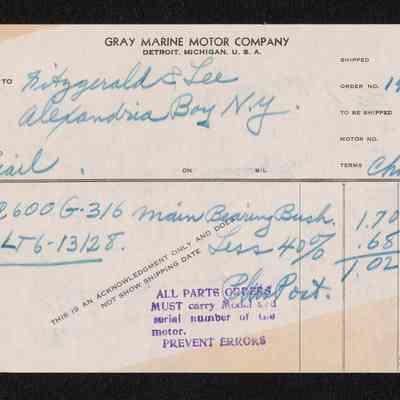 GRAY MARINE MOTOR COMPANY
DETROIT, MICHIGAN, U. S. A.
SHIPPED
TO Fitzgerald & Lee
ORDER NO. 19
Alexandria Bay N.Y.
TO BE SHIPPED
MOTOR NO.
ail . ON BIL
TERMS Ch
2600 G-316 Main Bearing Bush. 1.70
LT6-13128. Less 40% .68
1.02
Plus Post.
THIS IS AN ACKNOWLEDGMENT ONLY AND DOES
NOT SHOW SHIPPING DATE
ALL PARTS ORDERS
MUST carry Model and
serial number of the
motor.
PREVENT ERRORS